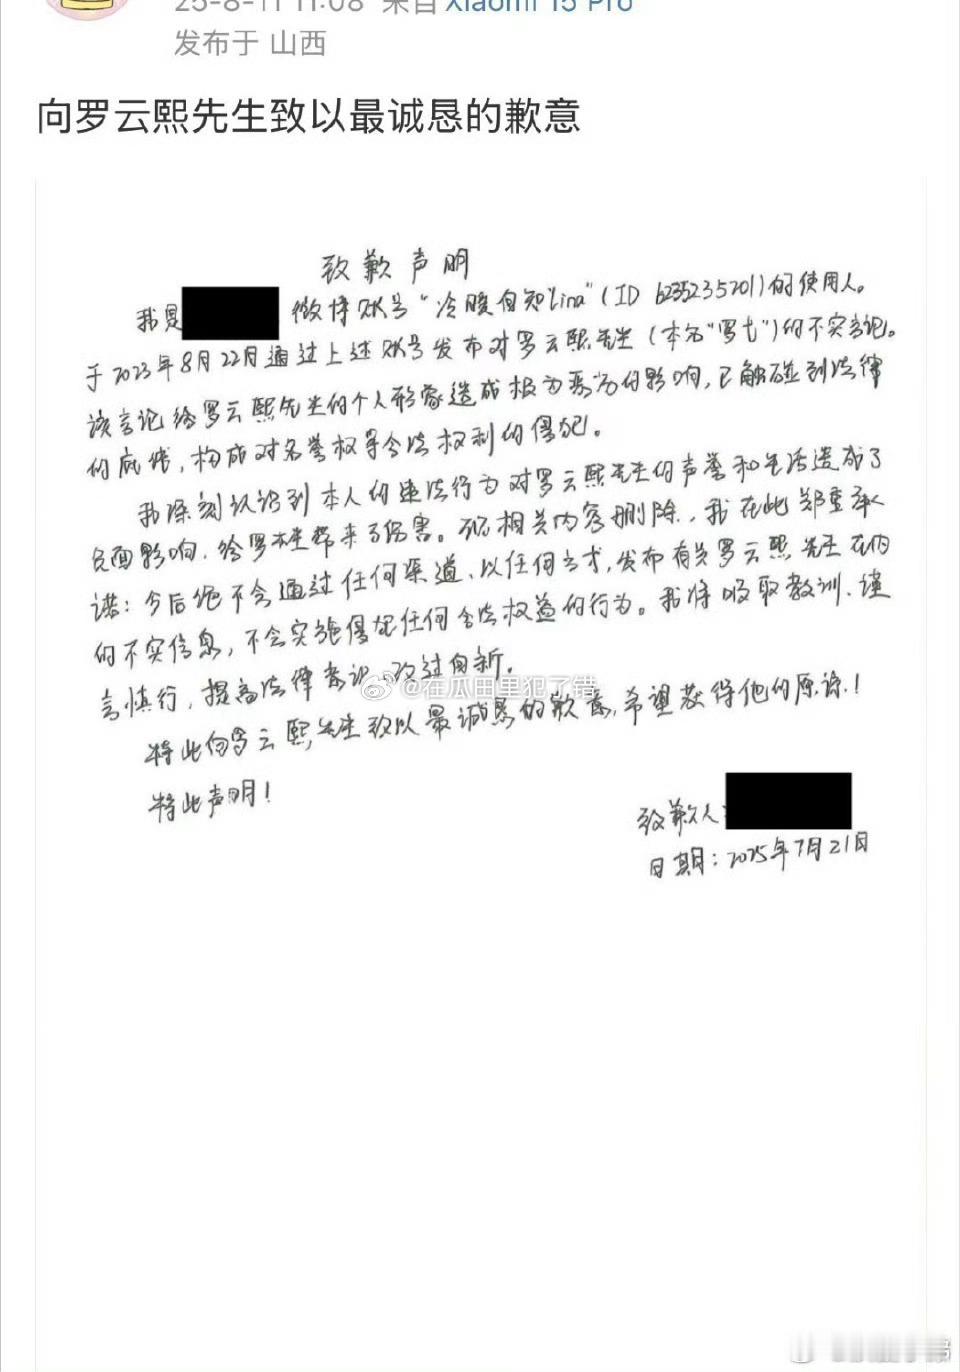 25-8-11 11:08 来自 Xiaomi 15 Pro
发布于 山西
向罗云熙先生致以最诚恳的歉意
致歉声明
我是 微博账号“冷暖自知lina”(ID 6235235701)的使用人。
于2023年8月22日通过上述账号发布对罗云熙先生(本名“罗弋”)的不实言论。
该言论给罗云熙先生的个人形象造成极为恶劣的影响,已触碰到法律
的底线,构成对名誉权等合法权利的侵犯。
我深刻认识到本人的违法行为对罗云熙先生的声誉和生活造成了
负面影响,给罗先生带来了伤害。现相关内容删除,我在此郑重承
诺:今后绝不会通过任何渠道、以任何方式,发布有关罗云熙先生在内
的不实信息,不会实施侵犯任何合法权益的行为。我将吸取教训、谨
言慎行,提高法律意识,改过自新。
特此向罗云熙先生致以最诚恳的歉意,希望获得他的原谅!
特此声明!
致歉人:
日期:2025年7月21日
@在瓜田里犯了错